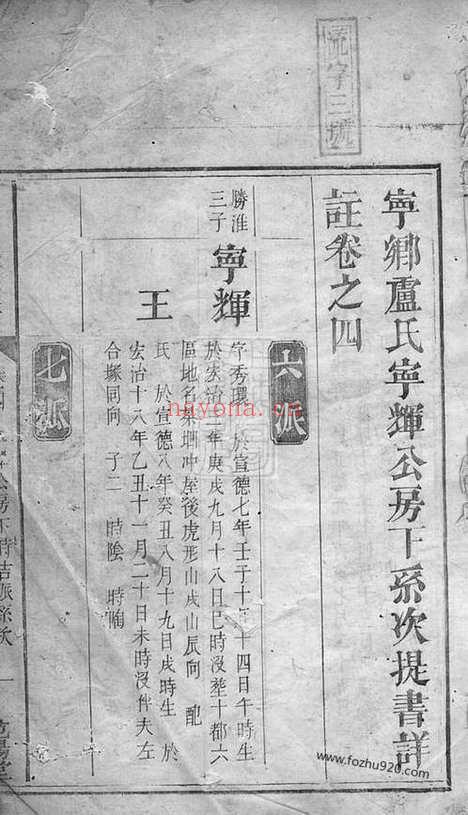 號字三號
寧鄉盧氏寧輝公房下系次提書詳
註卷之四
六派
勝淮
三子
寧輝
字秀環 於宣德七年壬子十年十四日午時生
於宏治三年庚戌九月十八日巳時沒塟十都六
區地名葉堋冲屋後虎形山戌山辰向 配
王
氏 於宣德八年癸丑八月十九日戌時生 於
宏治十八年乙丑十一月二十日未時沒仵夫左
合塚同向 子二 時陰 時陶
七派
nayona.cn
www.fozhu920.com